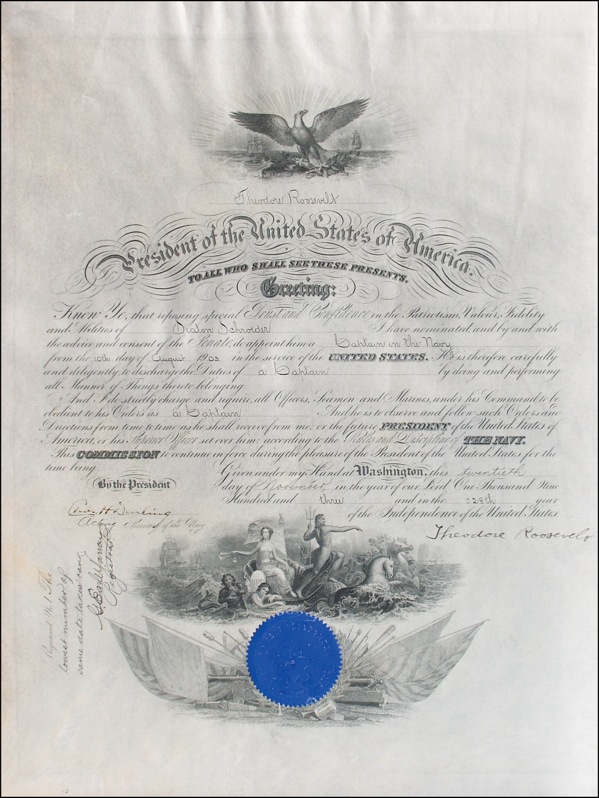 Theodore Roosevelt
President of the United States of America.
TO ALL WHO SHALL SEE THESE PRESENTS,
Greeting:
Know Ye, that reposing special Trust and Confidence in the Patriotism, Valour, Fidelity
and Abilities of Seaton Schroder I have nominated and by and with
the advice and consent of the Senate, do appoint him a Captain in the Navy
from the 10th day of August 1903 in the service of the UNITED STATES. He is therefore carefully
and diligently to discharge the Duties of a Captain by doing and performing
all Manner of Things thereto belonging.
And I do strictly charge and require all Officers, Seamen and Marines, under his Command to be
obedient to his Orders as a Captain And he is to observe and follow such Orders and
Directions from time to time as he shall receive from me, or the future PRESIDENT of the United States of
America, or his Superior Officer set over him, according to the Rules and Discipline of THE NAVY.
This COMMISSION to continue in force during the pleasure of the President of the United States for the
time being. Given under my Hand at Washington, this twentieth
By the President day of November in the year of our Lord One Thousand Nine
Hundred and three and in the 128th year
of the Independence of the United States.
Theodore Roosevelt
Chas H Darling
Acting Secretary of the Navy
Registered No 1. The
lowest number of
same date takes rank